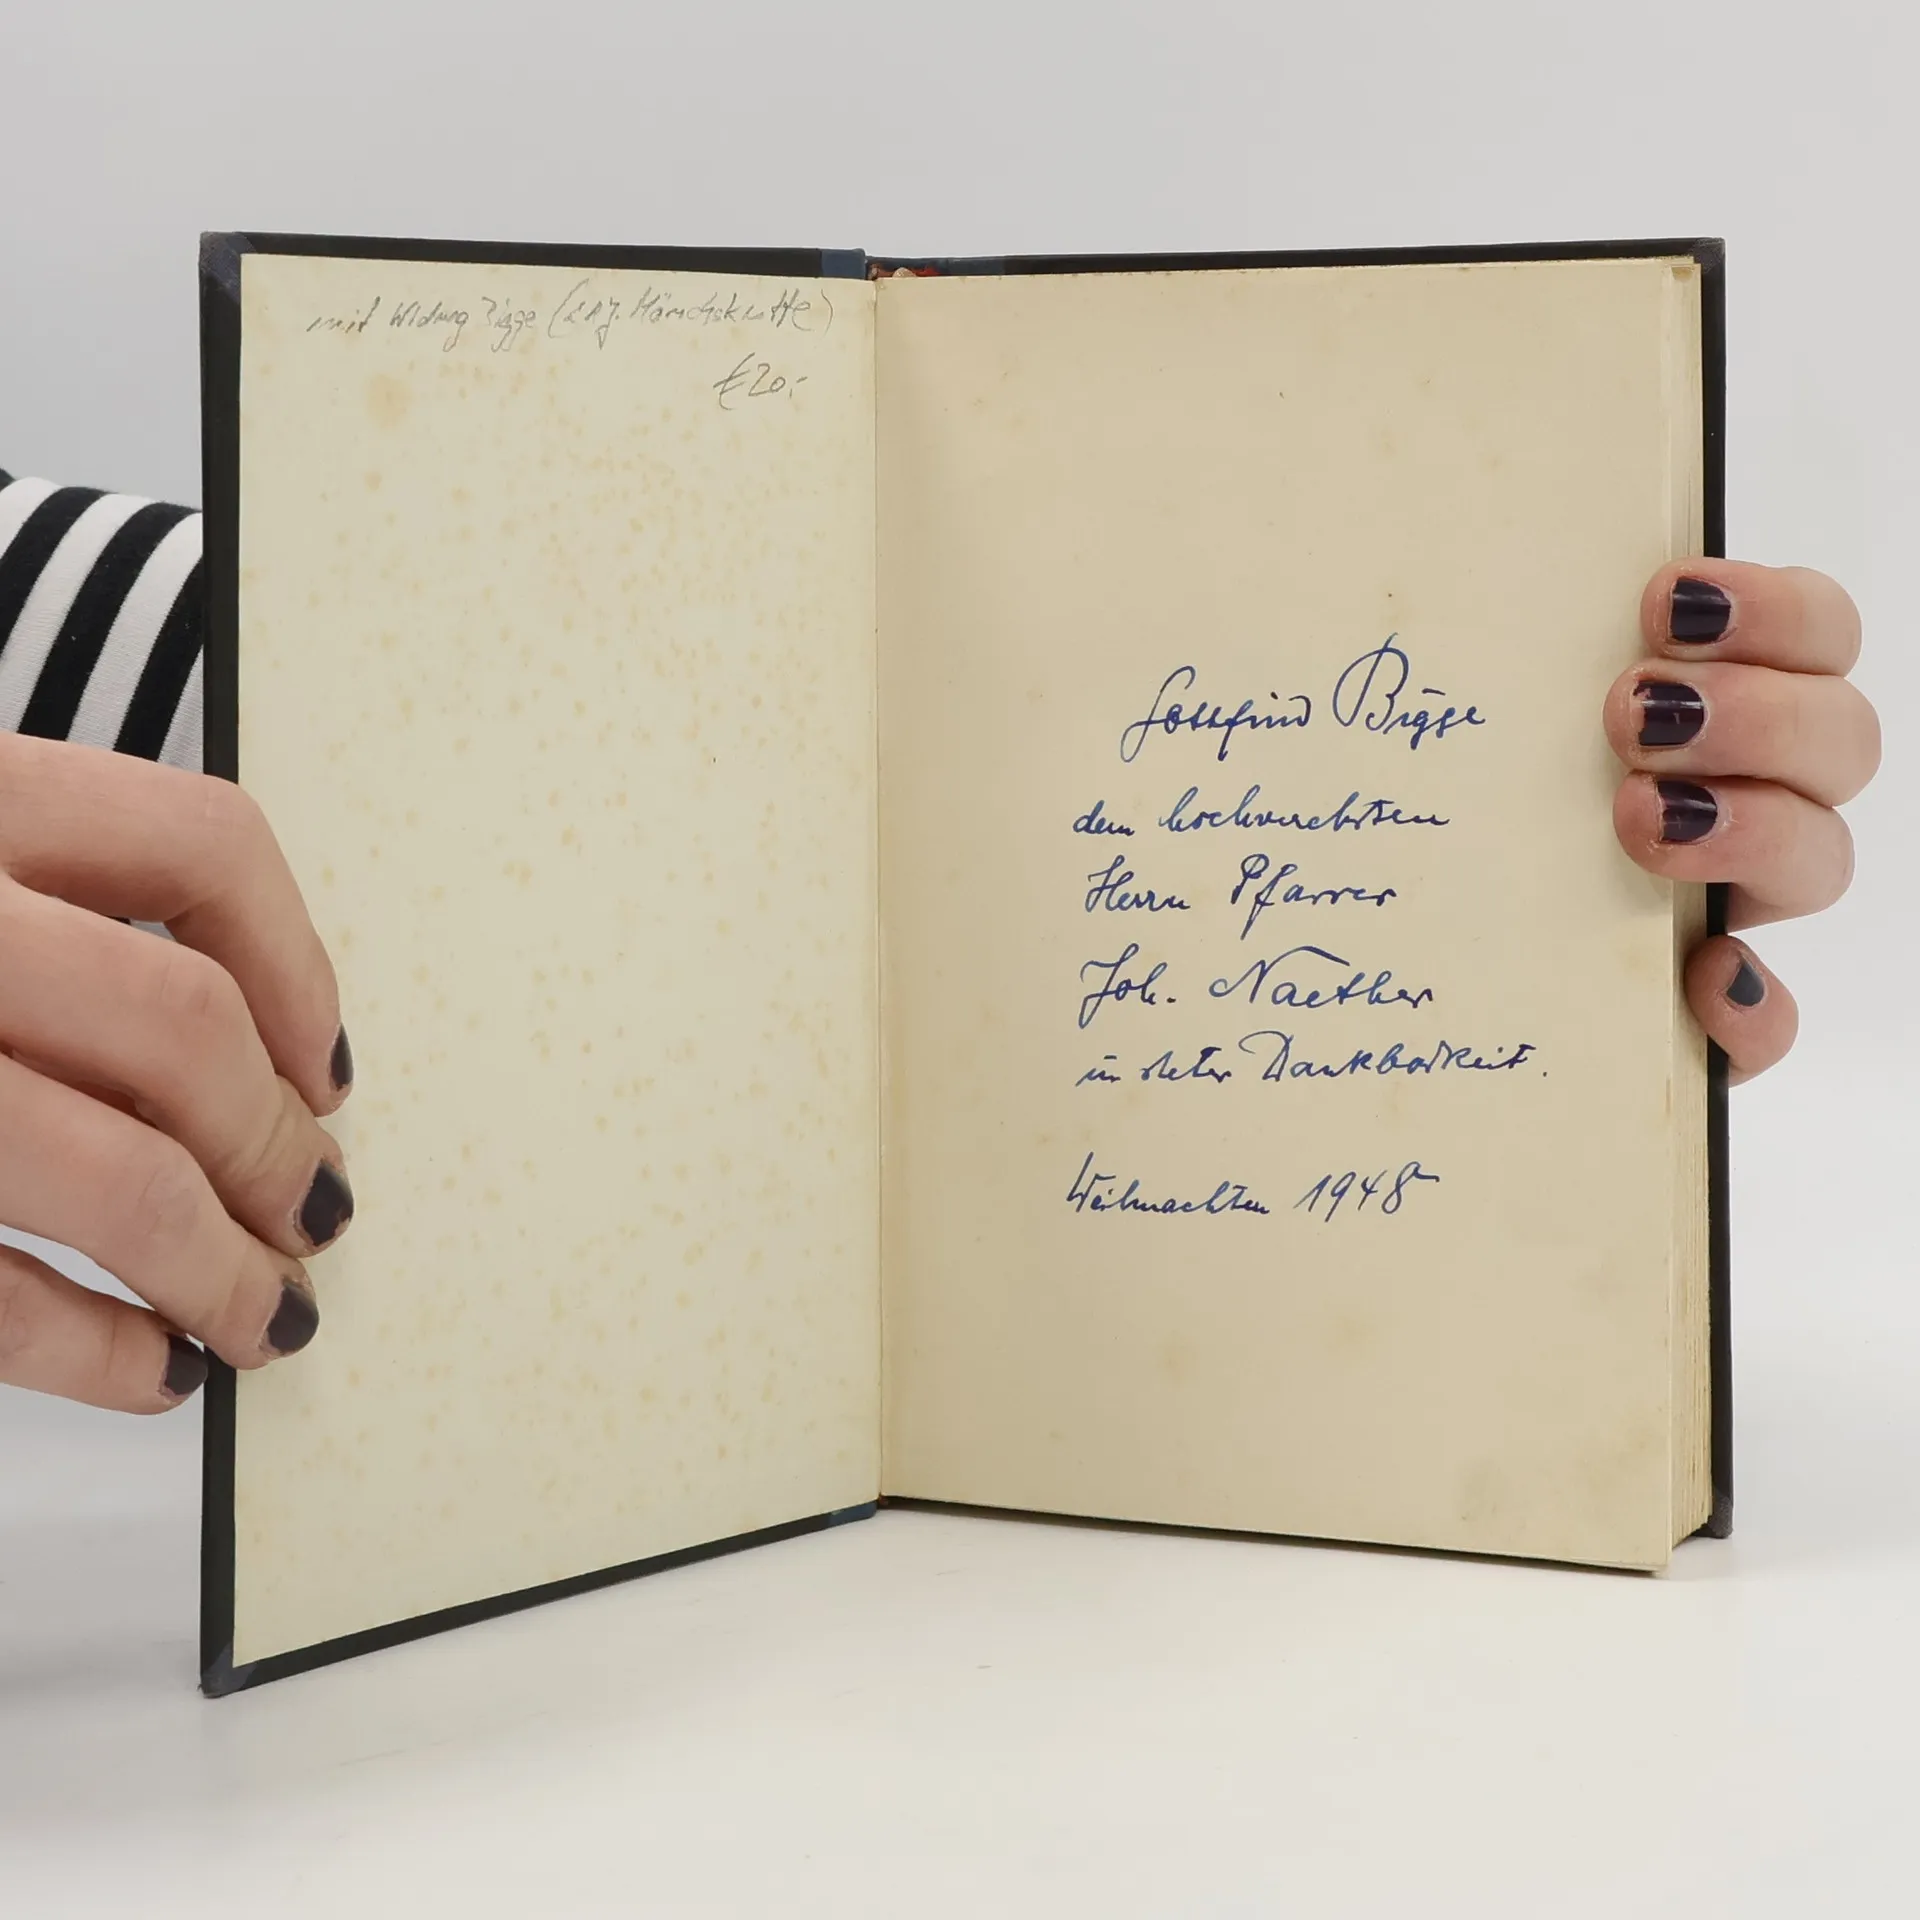 mit Widmung Bigge
€ 20.-
Gottfried Bigge
dem hochverehrten
Herrn Pfarrer
Joh. Naether
in steter Dankbarkeit.
Weihnachten 1948